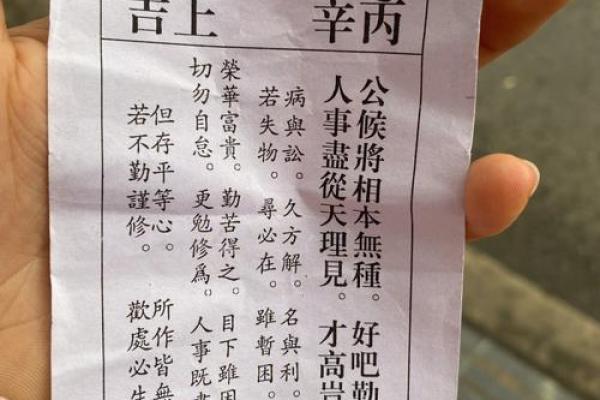 丙
辛
上
吉
公候將相本無種。好吧勤
人事盡從天理見。才高豈
病與訟。久方解。名與利。
若失物。尋必在。雖暫困。
榮華富貴。勤苦得之。目下雖困
切勿自怠。更勉修爲。人事既
但存平等心。所作皆無
若不勤謹修。歡處必生